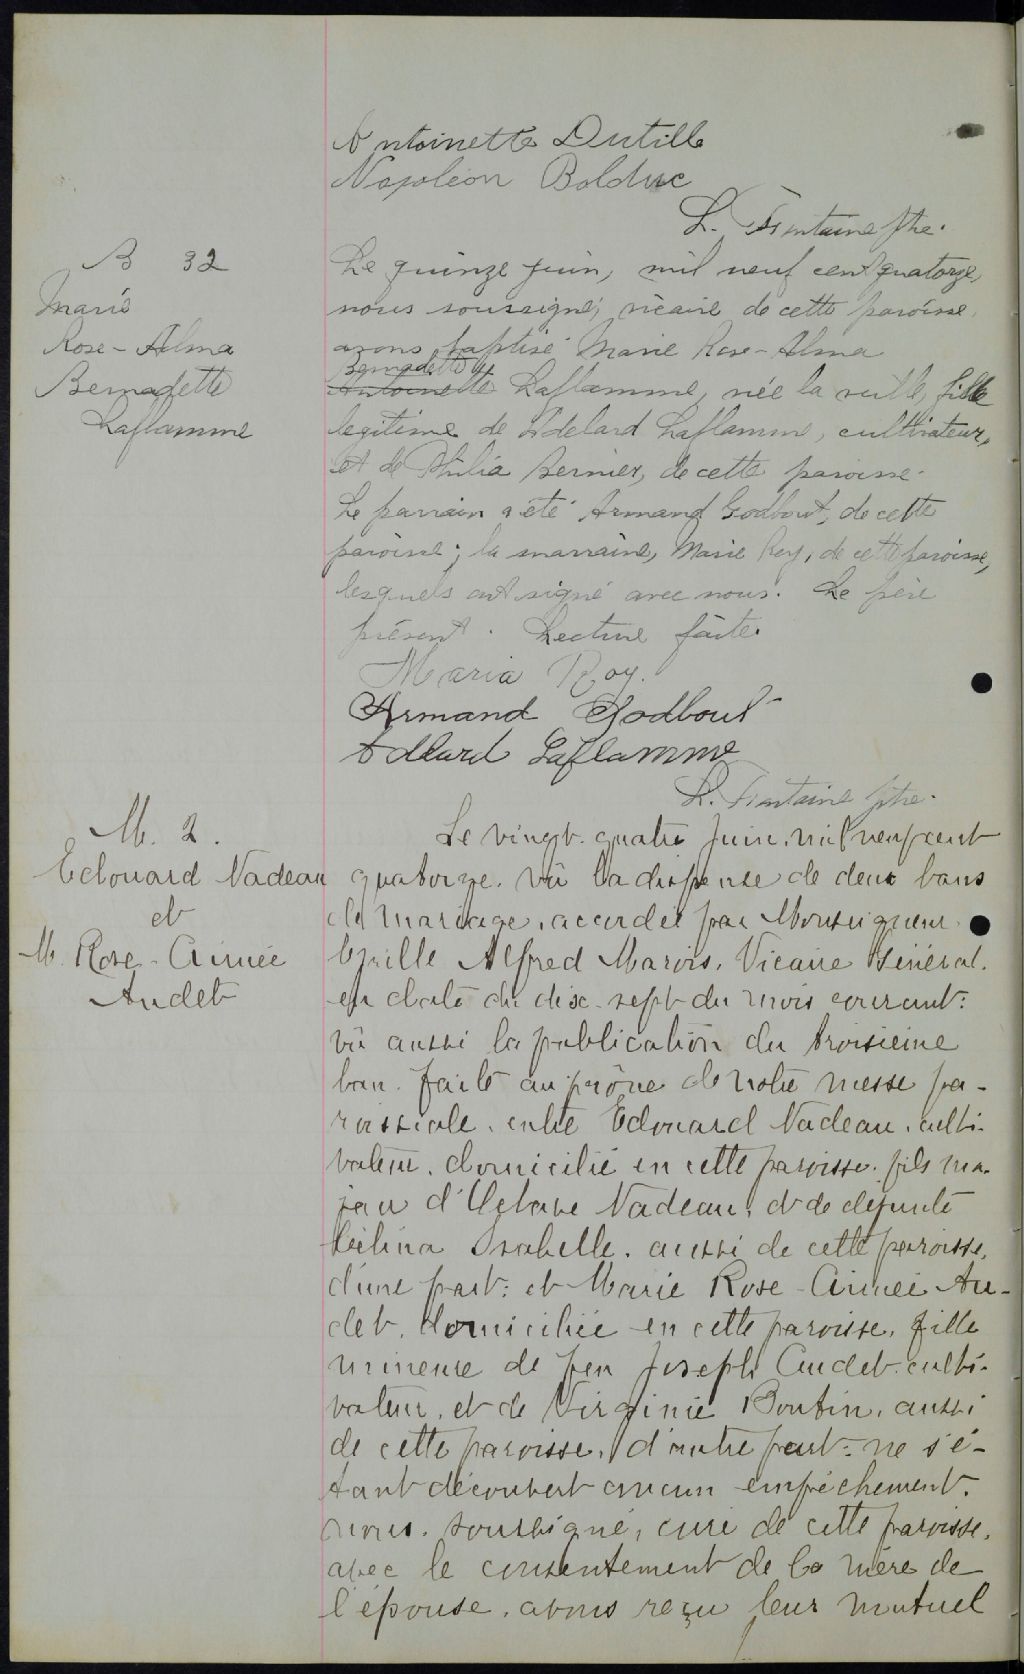 Antoinette Dutille
Napoléon Bolduc
L. Fontaine ptre.
B 32
Marie
Rose-Alma
Bernadette
Laflamme
Le quinze juin, mil neuf cent quatorze,
nous soussigné, vicaire de cette paroisse,
avons baptisé Marie Rose-Alma
Bernadette
Antoinette Laflamme, née la veille, fille
legitime de Adelard Laflamme, cultivateur,
et de Philia Bernier, de cette paroisse.
Le parrain a été Armand Godbout, de cette
paroisse; la marraine, Marie Roy, de cette paroisse,
lesquels ont signé avec nous. Le père
présent. Lecture faite.
Maria Roy.
Armand Godbout
Adelard Laflamme
L. Fontaine ptre.
M. 2.
Edouard Nadeau
et
M. Rose-Aimée
Audet
Le vingt-quatre Juin, mil neuf cent
quatorze, vû la dispense de deux bans
de mariage, accordée par Monseigneur
Cyrille Alfred Marois, Vicaire Général,
en date du dix-sept du mois courant:
vû aussi la publication du troisième
ban, faite au prône de notre messe pa-
roissiale, entre Edouard Nadeau, culti-
vateur, domicilié en cette paroisse, fils ma-
jeur d'Octave Nadeau, et de défunte
Célina Isabelle, aussi de cette paroisse,
d'une part: et Marie Rose-Aimée Au-
det, domiciliée en cette paroisse, fille
mineure de feu Joseph Audet, culti-
vateur, et de Virginie Boutin, aussi
de cette paroisse, d'autre part: ne s'é-
tant découvert aucun empêchement,
nous, soussigné, curé de cette paroisse,
avec le consentement de la mère de
l'épouse, avons reçu leur mutuel